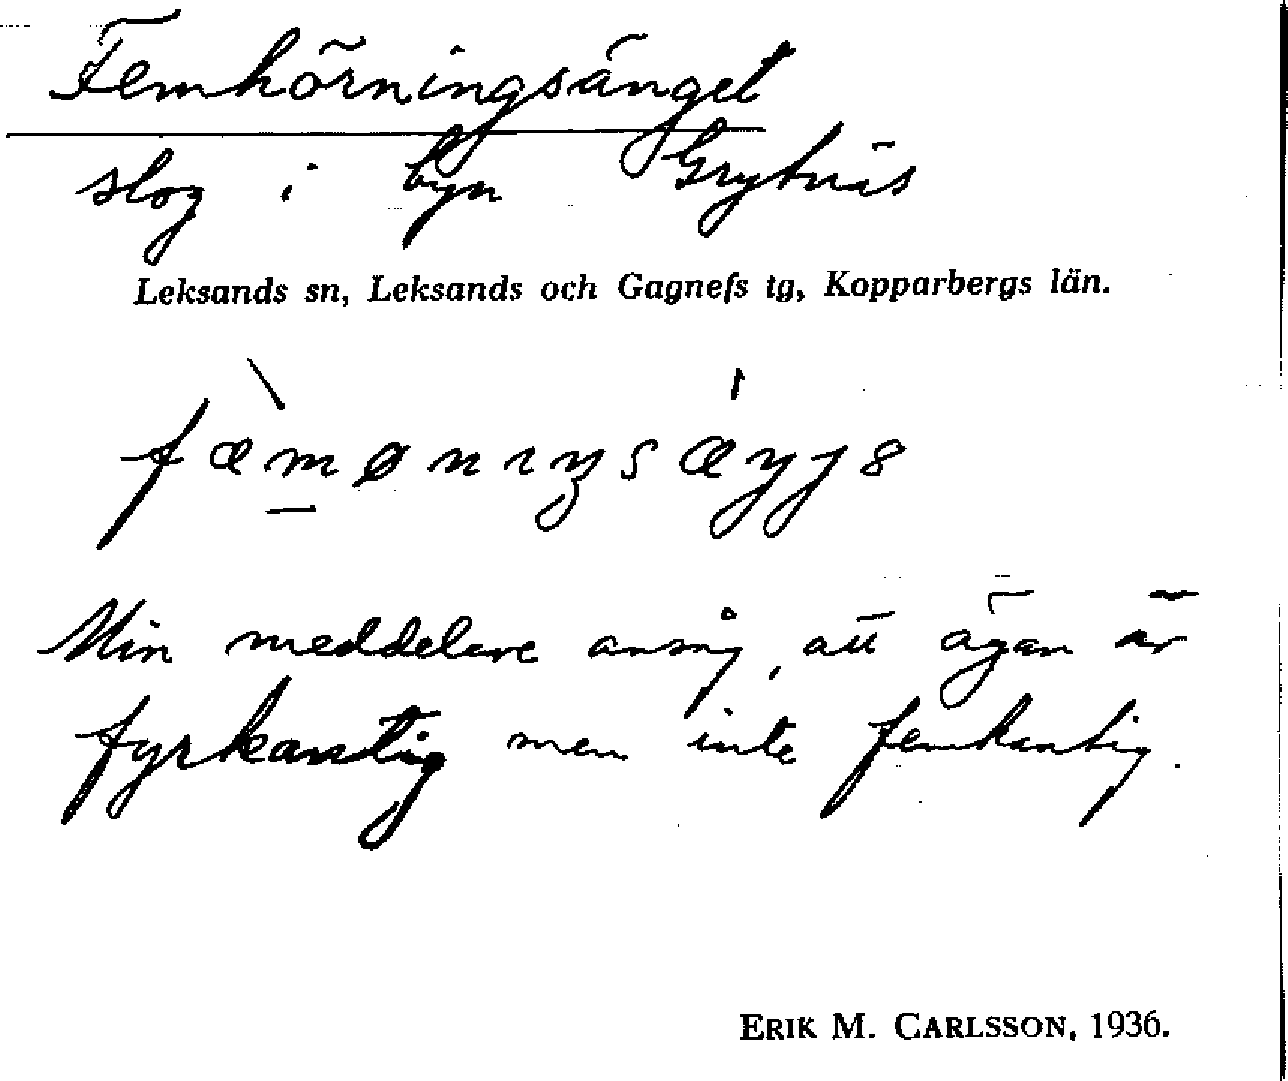 Femhörningsänget
slog i byn Grytnäs
Leksands sn, Leksands och Gagnefs tg, Kopparbergs län.
Min meddelare ansåg, att ägan är
fyrkantig men inte femkantig.
ERIK M. CARLSSON, 1936.